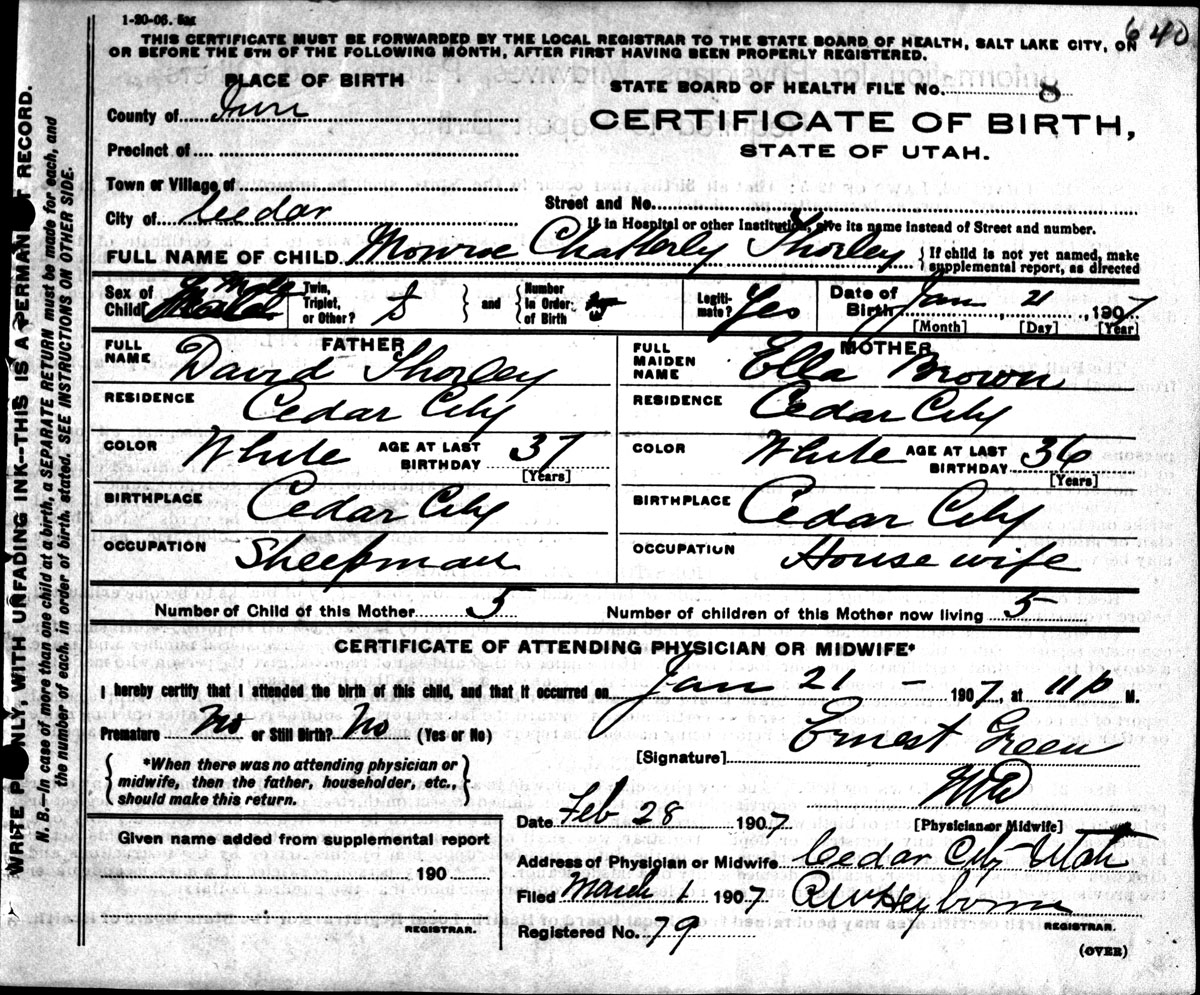 1-20-06. 5m
640
THIS CERTIFICATE MUST BE FORWARDED BY THE LOCAL REGISTRAR TO THE STATE BOARD OF HEALTH, SALT LAKE CITY, ON
OR BEFORE THE 5TH OF THE FOLLOWING MONTH, AFTER FIRST HAVING BEEN PROPERLY REGISTERED.
PLACE OF BIRTH
County of Iron
Precinct of
Town or Village of
City of Cedar
STATE BOARD OF HEALTH FILE No. 8
CERTIFICATE OF BIRTH,
STATE OF UTAH.
Street and No.
If in Hospital or other Institution, give its name instead of Street and number.
FULL NAME OF CHILD. Monroe Chatterly Thorley { If child is not yet named, make supplemental report, as directed
Sex of Child Male Twin, Triplet, or Other? } and { Number in Order of Birth Legiti-mate? Yes Date of Birth Jan 21, 1907
[Month] [Day] [Year]
FATHER
FULL NAME David Thorley
RESIDENCE Cedar City
COLOR White AGE AT LAST BIRTHDAY 37 [Years]
BIRTHPLACE Cedar City
OCCUPATION Sheepman
MOTHER
FULL MAIDEN NAME Ella Brown
RESIDENCE Cedar City
COLOR White AGE AT LAST BIRTHDAY 36 [Years]
BIRTHPLACE Cedar City
OCCUPATION House wife
Number of Child of this Mother 5 Number of children of this Mother now living 5
CERTIFICATE OF ATTENDING PHYSICIAN OR MIDWIFE*
I hereby certify that I attended the birth of this child, and that it occurred on Jan 21 - 1907, at 11 p M.
Premature No or Still Birth? No (Yes or No)
{ *When there was no attending physician or
midwife, then the father, householder, etc.,
should make this return. }
[Signature] Ernest Green
MD
[Physician or Midwife]
Date Feb 28 1907
Address of Physician or Midwife Cedar City Utah
Filed March 1 1907 R W Heyborne
REGISTRAR.
Registered No. 79
(OVER)
Given name added from supplemental report
190
REGISTRAR.
WRITE PLAINLY, WITH UNFADING INK--THIS IS A PERMANENT RECORD.
N. B.—In case of more than one child at a birth, a SEPARATE RETURN must be made for each, and
the number of each, in order of birth, stated. SEE INSTRUCTIONS ON OTHER SIDE.